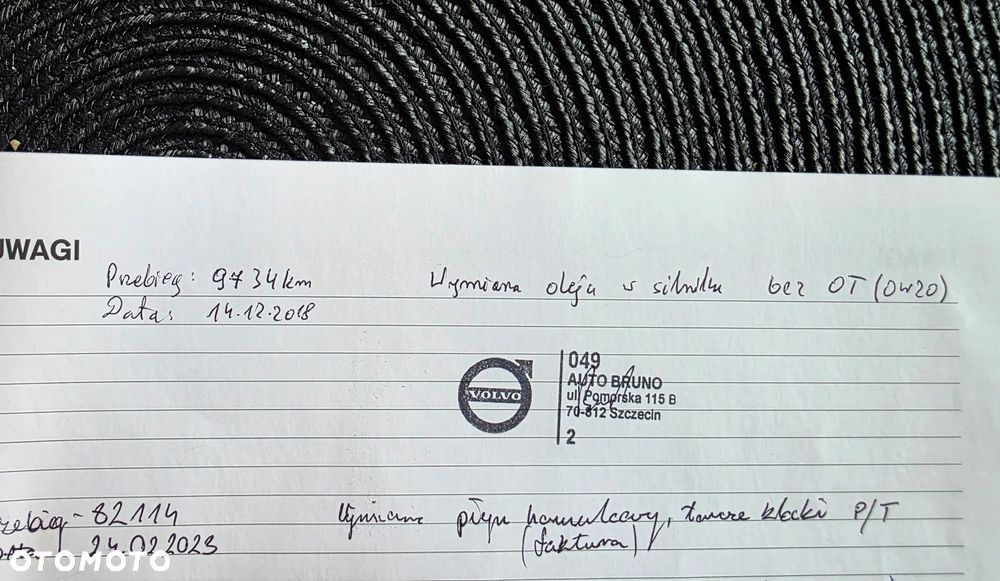 UWAGI
Przebieg: 9734km Wymiana oleju w silniku bez OT (0w20)
Data: 14.12.2018
VOLVO
049
AUTO BRUNO
ul. Pomorska 115 B
70-812 Szczecin
2
zebieg - 82114 Wymiana płyn hamulcowy, tarcze klocki P/T
24.02.2023 (faktura)
OTOMOTO